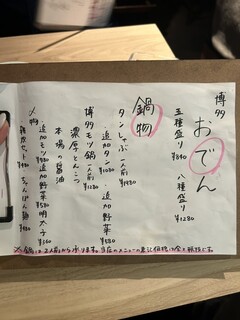 博多おでん
五種盛り ¥890
八種盛り ¥1280
鍋物
タンしゃぶ 一人前 ¥1980
・追加タン ¥1080
・追加野菜 ¥580
博多モツ鍋 一人前 ¥1280
濃厚とんこつ
本場の醤油
・追加モツ ¥980
・追加野菜 ¥580
明太子 ¥560
〆物
雑炊セット ¥480
ちゃんぽん麺 ¥480
※鍋は2人前から承ります。当店のメニューの表記価格は全て税抜です。